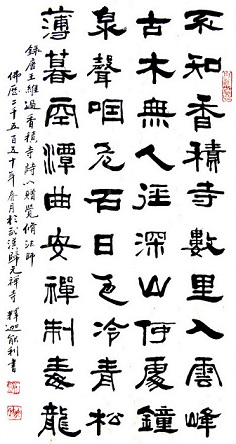 不知香積寺數里入雲峰
古木無人徑深山何處鐘
泉聲咽危石日色冷青松
薄暮空潭曲安禪制毒龍
錄唐王維過香積寺詩以贈覺脩法師
佛曆二千五百五十年春月於武漢歸元禪寺釋迦能利書